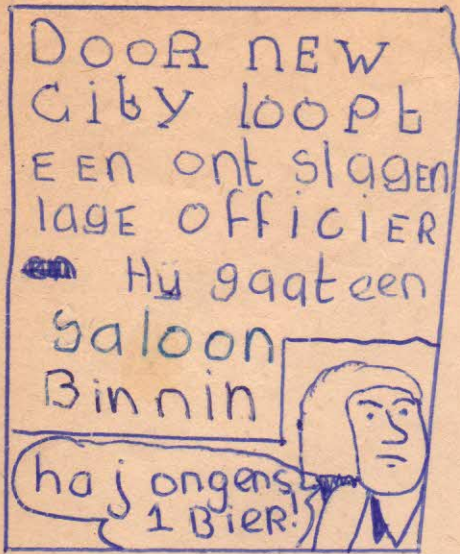 DooR nEW
City loopt
EEn ont slagen
lagE OFFICIER
Hij gaat een
Saloon
Binnin
ha jongens
1 BieR!